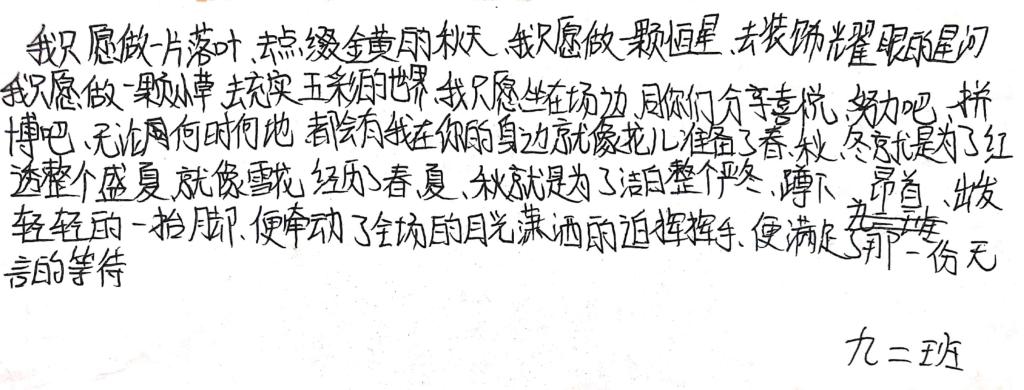 我只愿做一片落叶、去点缀金黄的秋天、我只愿做一颗恒星、去装饰耀眼的星河
我只愿做一颗小草、去充实五彩的世界、我只愿坐在场边、同你们分享喜悦、努力吧、拼
博吧、无论何时何地、都会有我在你的身边就像花儿准备了春、秋、冬就是为了红
透整个盛夏、就像雪花、经历了春、夏、秋就是为了洁白整个严冬、蹲下、昂首、出发
轻轻的一抬脚、便牵动了全场的目光潇洒的挥挥手、便满足了那一份无
九二班
言的等待
九二班